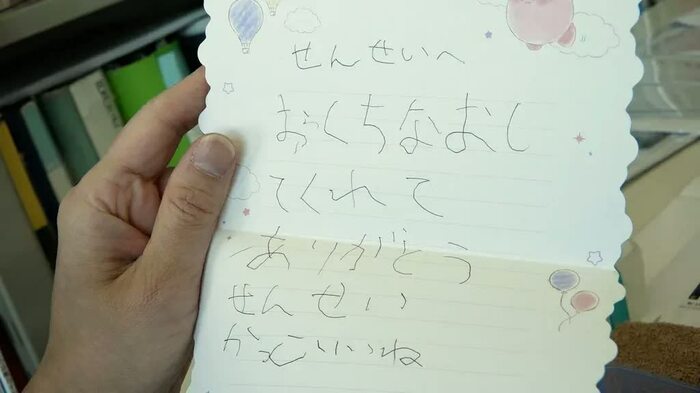 せんせいへ
おくちなおし
てくれて
ありがとう
せんせい
かっこいいね